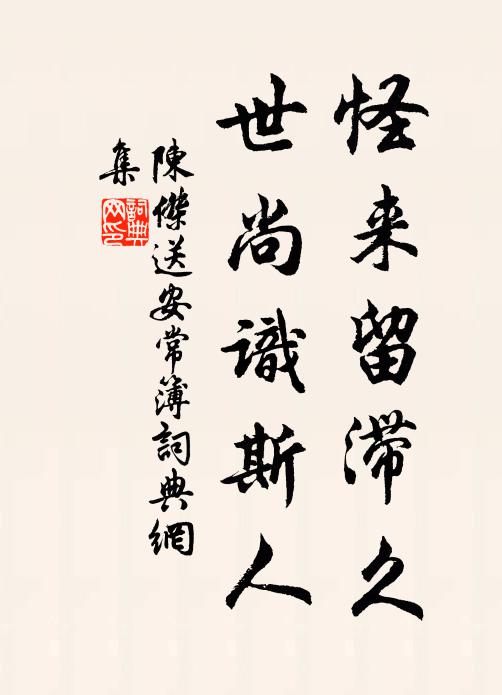 怪来留滞久
世尚識斯人
陳傑送安常簿詞典網
集
詞典
网印